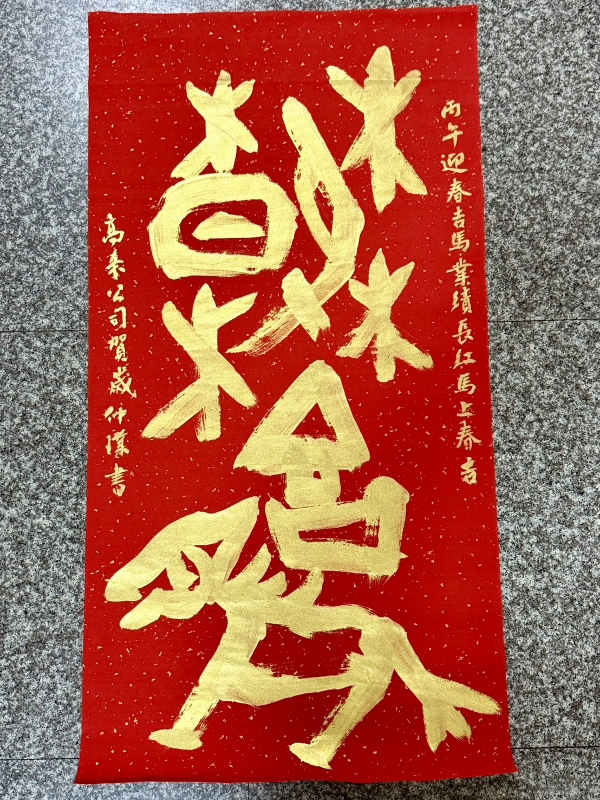 丙午迎春吉馬業績長紅馬上春吉
春吉馬
高泰公司賀歲仲書